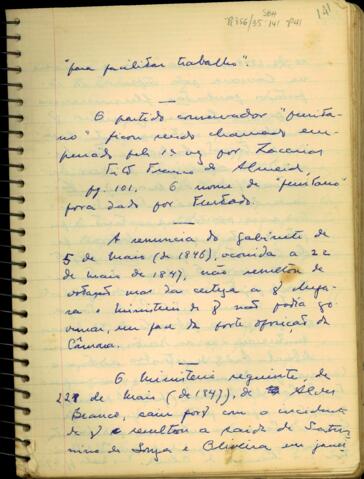 141
SBH
P356/35 141 P41
"para facilitar trabalho".
O partido conservador "puritano"
ficou sendo chamado
pela 1ª vez por Zacarias
Tito Franco de Almeida,
pg. 101. O nome de "puritano"
fora dado por Furtado.
A renuncia do gabinete de
5 de Maio (de 1846), ocorrida a 22
de maio de 1847, não resultou de
votação mas da certeza a q
o ministerio de q não podia governar,
em face da forte oposição da
Câmara.
O Ministerio seguinte, de
22 de Maio (de 1847), de Alves
Branco, caiu com o incidente
de q resultou a saida de Saturnino
de Souza e Oliveira em